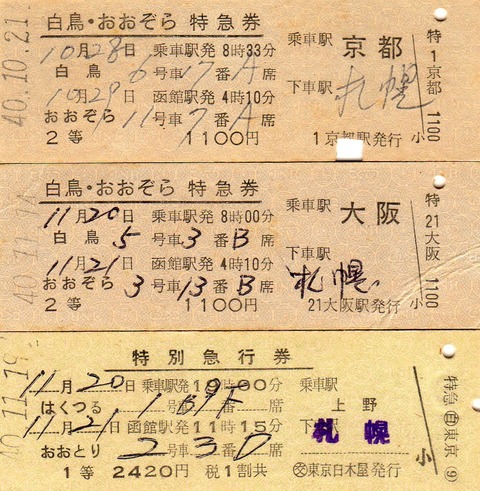 40.10.21
白鳥・おおぞら 特急券
10月28日 乗車駅発 8時33分
白鳥 6号車17番A席
10月29日 函館駅発 4時10分
おおぞら 11号車7番A席
2等 1100円
乗車駅 京都
下車駅 札幌
1京都駅発行 小
特1京都 1100
40.11.14
白鳥・おおぞら 特急券
11月20日 乗車駅発 8時00分
白鳥 5号車3番B席
11月21日 函館駅発 4時10分
おおぞら 3号車13番B席
2等 1100円
乗車駅 大阪
下車駅 札幌
21大阪駅発行 小
特21大阪 1100
40.11.19
特別急行券
11月20日 乗車駅発19時00分
はくつる 1号車B9番F席
11月21日 函館駅発11時15分
おおとり 2号車3番D席
1等 2420円 税1割共
乗車駅 上野
下車駅 札幌
交東京日本屋発行 小
特急 日東京 (9)